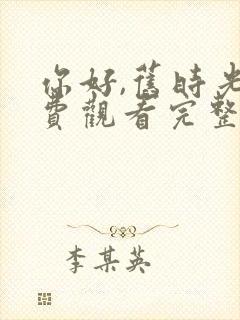 你好,舊時光
費觀看完整
李某英